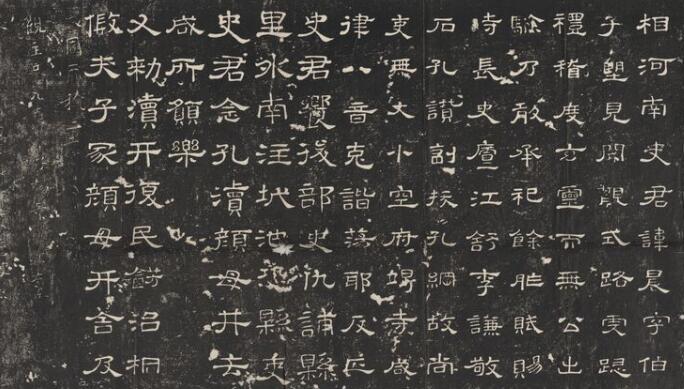 相河南史君諱晨字伯
子望見闕觀式路虔跽
禮稽度玄靈而無公出
驗乃敢承祀餘胙賦賜
時長史廬江舒李謙敬
石孔讚副掾孔綱故尚
吏無大小空府竭寺咸
律八音克諧蕩耶反正
史君饗後部史仇誧縣
里外南注城池恐縣吏
史君念孔瀆顏母井去
咸所願樂
又勑瀆井復民餝治桐
假夫子冢顏母井舍及